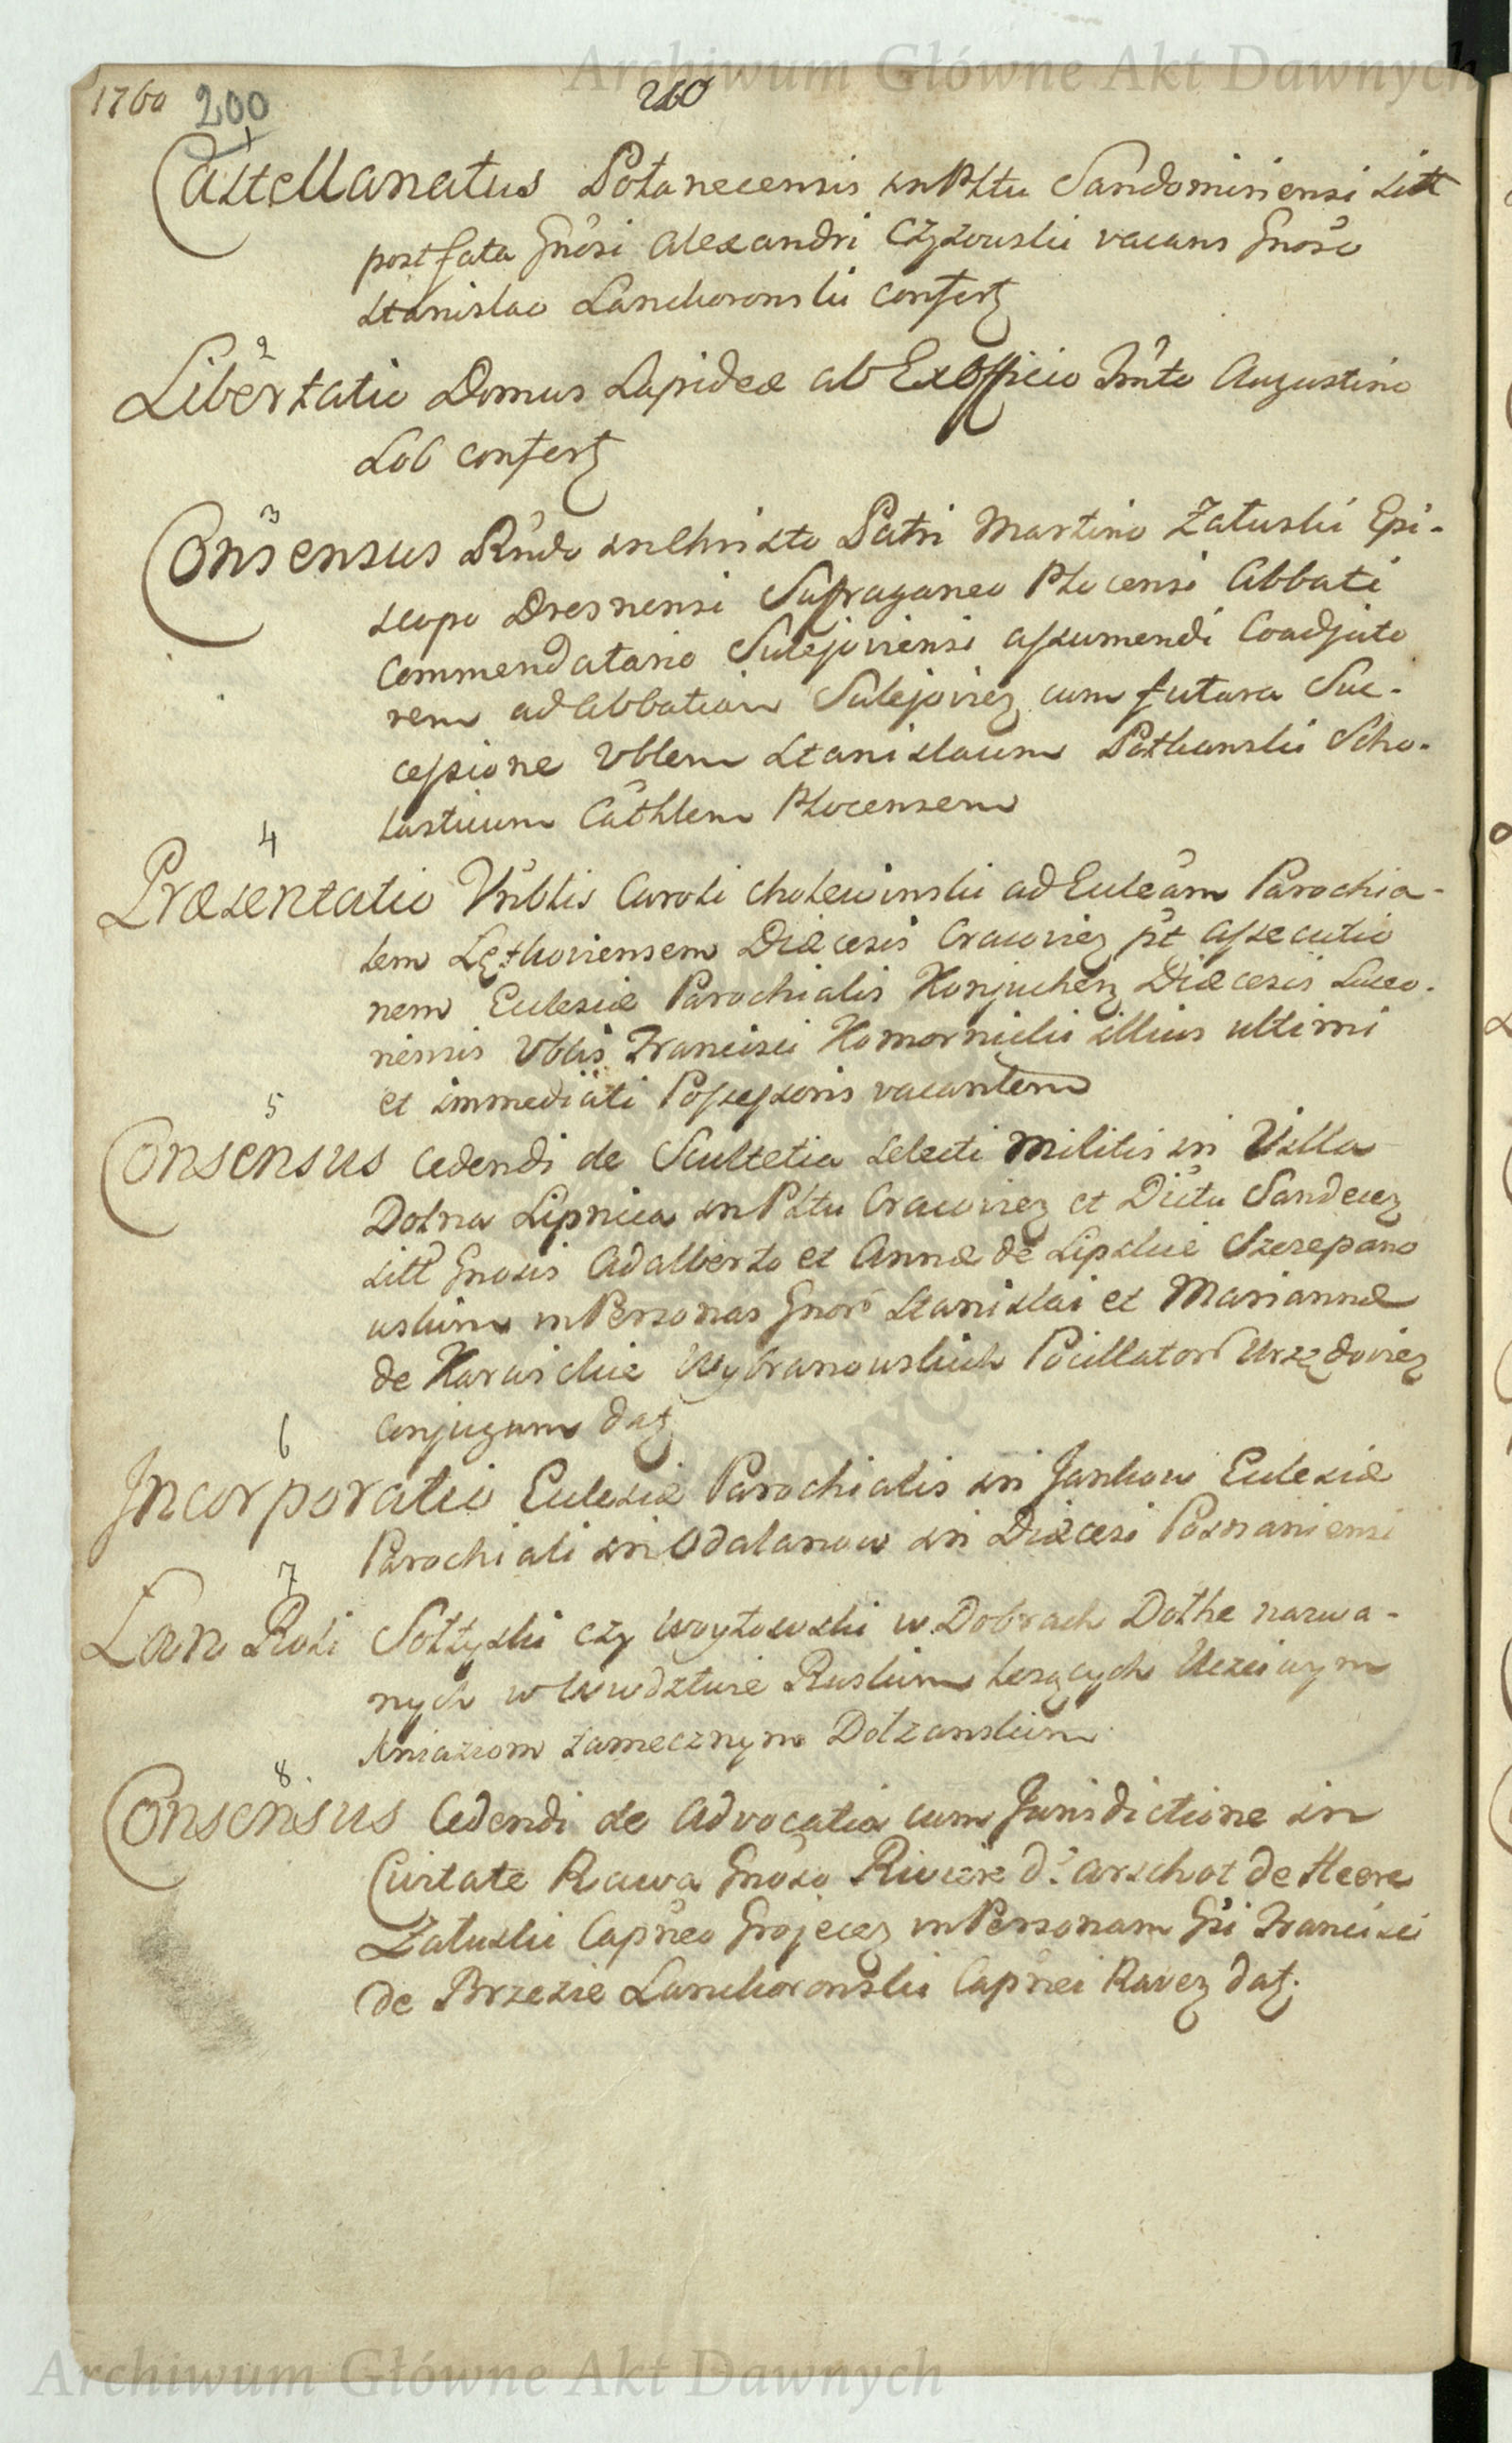 Archiwum Główne Akt Dawnych
1760 200 200
1
Castellanatus Połanecensis in Pltu Sandomiriensi sitt
post fata Gnosi Alexandri Czyżowski vacans Gnoso
Stanislao Lanckoronski confert
2
Libertatio Domus Lapideæ ab Ex Officio Fmto Augustino
Lob confert
3
Consensus Rndo in Christo Patri Martino Załuski Epi-
scopo Dresnensi Sufraganeo Płocensi Abbati
Commendatario Sulejoviensi assumendi Coadjuto
rem ad Abbatiam Sulejovień cum futura Suc-
cessione Vblem Stanislaum Pothanski Scho-
lasticum Cathlem Płocensem
4
Præsentatio Vnblis Caroli Cholewinski ad Eccleam Parochia-
lem Lętkoviensem Diæcesis Cracovień pt assecutio
nem Ecclesiæ Parochialis Konjucheń Diæcesis Luceo-
riensis Vblis Francisci Komornicki illius ultimi
et immediati Possessoris vacantem
5
Consensus cedendi de Scultetia selecti Militis in Villa
Dolna Lipnica in Pltu Cracovień et Dictu Sandeceń
sitt Gnosis Adalberto et Annæ de Lipskie Szczepano
wskim in Personas Gnor Stanislai et Mariannæ
de Karwickie Wybranowskich Pocillator Urzędovień
Conjugum dat
6
Incorporatio Ecclesiæ Parochialis in Jankow Ecclesiæ
Parochiali in Odalanow in Diæcesi Posnaniensi
7
Łan Roli Sołtyski czy Woytowski w Dobrach Dołhe nazwa-
nych w Wwdztwie Ruskim leżących Uczciwym
Kniaziom zamecznym Dołzanskim
8
Consensus Cedendi de Advocatia cum Jurisdictione in
Civitate Rawa Gnoso Riviere d'Arschot de Heere
Załuski Capneo Grojeceń in Personam Gsi Francisci
de Brzezie Lanckoronski Capnei Raveń dat.
Archiwum Główne Akt Dawnych